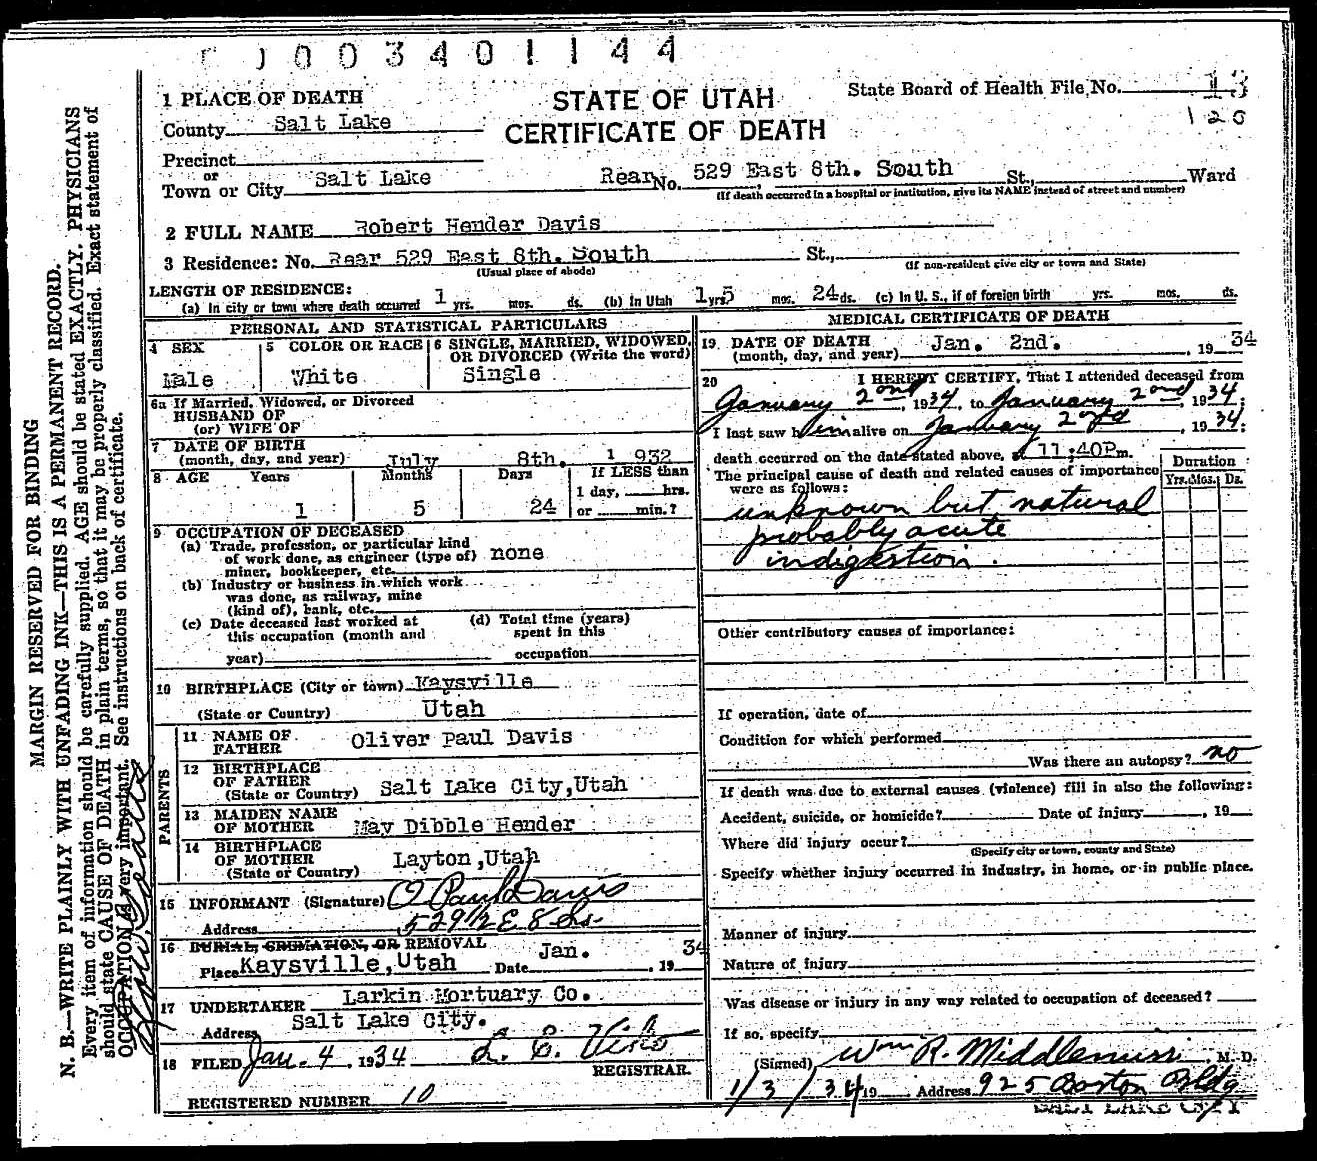 0003401144
1 PLACE OF DEATH
County Salt Lake
Precinct
or
Town or City Salt Lake
STATE OF UTAH
CERTIFICATE OF DEATH
State Board of Health File No. 13
120
Rear No. 529 East 8th. South St., Ward
(If death occurred in a hospital or institution, give its NAME instead of street and number)
2 FULL NAME Robert Hender Davis
3 Residence: No. Rear 529 East 8th. South St.,
(Usual place of abode) (If non-resident give city or town and State)
LENGTH OF RESIDENCE:
(a) In city or town where death occurred 1 yrs. mos. ds. (b) In Utah 1 yrs. 5 mos. 24 ds. (c) In U. S., if of foreign birth yrs. mos. ds.
PERSONAL AND STATISTICAL PARTICULARS
4 SEX
Male
5 COLOR OR RACE
White
6 SINGLE, MARRIED, WIDOWED, OR DIVORCED (Write the word)
Single
6a If Married, Widowed, or Divorced
HUSBAND OF
(or) WIFE OF
7 DATE OF BIRTH
(month, day, and year) July 8th. 1932
8 AGE Years Months Days If LESS than
1 day, hrs.
1 5 24 or min.?
9 OCCUPATION OF DECEASED
(a) Trade, profession, or particular kind
of work done, as engineer (type of) none
miner, bookkeeper, etc.
(b) Industry or business in which work
was done, as railway, mine
(kind of), bank, etc.
(c) Date deceased last worked at
this occupation (month and
year)
(d) Total time (years)
spent in this
occupation
10 BIRTHPLACE (City or town) Kaysville
(State or Country) Utah
PARENTS
11 NAME OF
FATHER Oliver Paul Davis
12 BIRTHPLACE
OF FATHER
(State or Country) Salt Lake City, Utah
13 MAIDEN NAME
OF MOTHER May Dibble Hender
14 BIRTHPLACE
OF MOTHER
(State or Country) Layton, Utah
15 INFORMANT (Signature) O Paul Davis
Address 529 1/2 E 8 So.
16 BURIAL, CREMATION, OR REMOVAL
Place Kaysville, Utah Date Jan. 1934
17 UNDERTAKER Larkin Mortuary Co.
Address Salt Lake City.
18 FILED Jan. 4, 1934
REGISTRAR.
REGISTERED NUMBER 10
MEDICAL CERTIFICATE OF DEATH
19 DATE OF DEATH
(month, day, and year) Jan. 2nd. , 1934
20 I HEREBY CERTIFY, That I attended deceased from
January 2nd, 1934, to January 2nd, 1934;
I last saw him alive on January 2nd, 1934;
death occurred on the date stated above, at 11;40P m.
The principal cause of death and related causes of importance
were as follows:
Duration
Yrs. Mos. Ds.
unknown but natural
probably acute
indigestion.
Other contributory causes of importance:
If operation, date of
Condition for which performed
Was there an autopsy? no
If death was due to external causes (violence) fill in also the following:
Accident, suicide, or homicide? Date of injury , 19
Where did injury occur?
(Specify city or town, county and State)
Specify whether injury occurred in industry, in home, or in public place.
Manner of injury
Nature of injury
Was disease or injury in any way related to occupation of deceased?
If so, specify
(Signed) Wm R. Middlemiss, M. D.
1/3/34 19 Address 925 Boston Bldg
SALT LAKE CITY
MARGIN RESERVED FOR BINDING
N. B.—WRITE PLAINLY WITH UNFADING INK—THIS IS A PERMANENT RECORD.
Every item of information should be carefully supplied. AGE should be stated EXACTLY. PHYSICIANS
should state CAUSE OF DEATH in plain terms, so that it may be properly classified. Exact statement of
OCCUPATION is very important. See instructions on back of certificate.